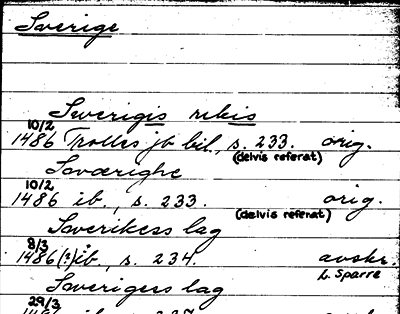 Sverige
Swerigis rikis
10/2
1486 Trolles jb bil., s. 233. orig.
(delvis referat)
Swærighe
10/2
1486 ib., s. 233. orig.
(delvis referat)
Swerikess lag
8/3
1486(?) ib., s. 234. avskr.
L. Sparre
Swerigess lag
29/3